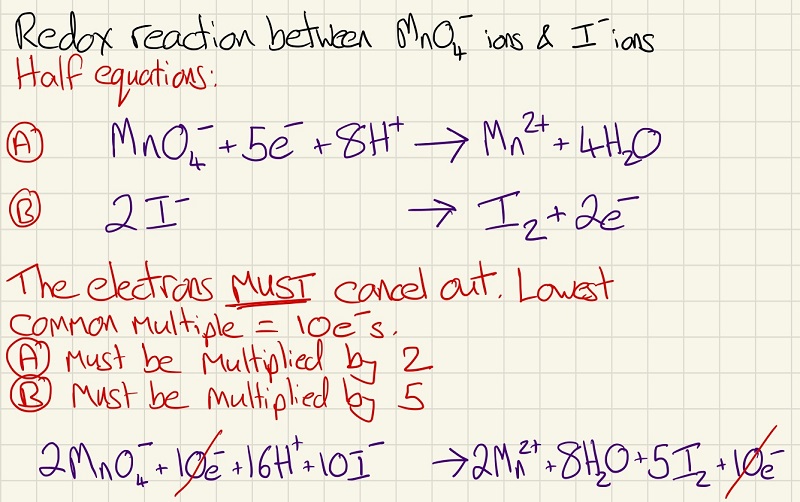 Redox reaction between MnO₄⁻ ions & I⁻ ions
Half equations:
Ⓐ MnO₄⁻ + 5e⁻ + 8H⁺ → Mn²⁺ + 4H₂O
Ⓑ 2I⁻ → I₂ + 2e⁻
The electrons MUST cancel out. Lowest
common multiple = 10e⁻s.
Ⓐ must be multiplied by 2
Ⓑ must be multiplied by 5
2MnO₄⁻ + 10e⁻ + 16H⁺ + 10I⁻ → 2Mn²⁺ + 8H₂O + 5I₂ + 10e⁻